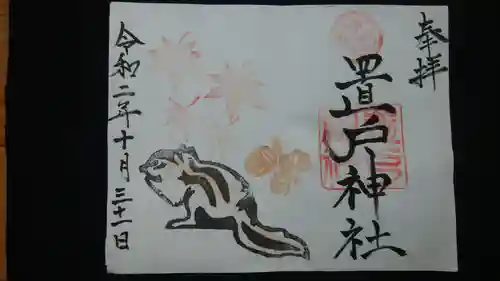 奉拝
置戸神社
令和二年十月三十一日